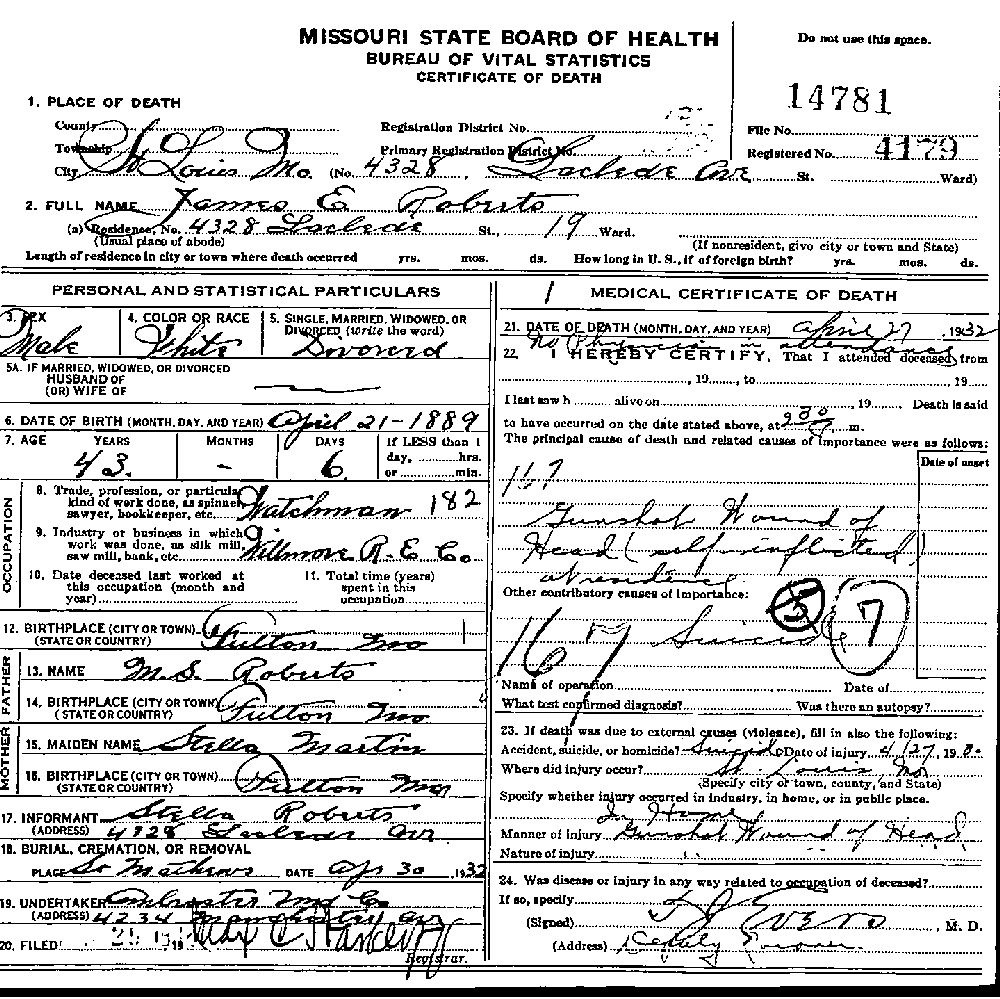 MISSOURI STATE BOARD OF HEALTH
BUREAU OF VITAL STATISTICS
CERTIFICATE OF DEATH
Do not use this space.
14781
1. PLACE OF DEATH
County
Registration District No.
File No.
Township
Primary Registration District No.
Registered No. 4179
City St Louis Mo. (No. 4328, Laclede Ave St. Ward)
2. FULL NAME James E Roberts
(a) Residence, No. 4328 Laclede St., 19 Ward.
(Usual place of abode) (If nonresident, give city or town and State)
Length of residence in city or town where death occurred yrs. mos. ds. How long in U. S., if of foreign birth? yrs. mos. ds.
PERSONAL AND STATISTICAL PARTICULARS
3. SEX
Male
4. COLOR OR RACE
White
5. SINGLE, MARRIED, WIDOWED, OR DIVORCED (write the word)
Divorced
5A. IF MARRIED, WIDOWED, OR DIVORCED
HUSBAND OF
(OR) WIFE OF
6. DATE OF BIRTH (MONTH, DAY, AND YEAR) April 21-1889
7. AGE YEARS MONTHS DAYS If LESS than 1
day, hrs.
or min.
43. - 6
OCCUPATION
8. Trade, profession, or particular
kind of work done, as spinner,
sawyer, bookkeeper, etc. Watchman 182
9. Industry or business in which
work was done, as silk mill,
saw mill, bank, etc. Willmore R. E. Co.
10. Date deceased last worked at
this occupation (month and
year)
11. Total time (years)
spent in this
occupation
12. BIRTHPLACE (CITY OR TOWN) Fulton Mo
(STATE OR COUNTRY)
FATHER
13. NAME M. S. Roberts
14. BIRTHPLACE (CITY OR TOWN) Fulton Mo
(STATE OR COUNTRY)
MOTHER
15. MAIDEN NAME Stella Martin
16. BIRTHPLACE (CITY OR TOWN) Fulton Mo
(STATE OR COUNTRY)
17. INFORMANT Stella Roberts
(ADDRESS) 4328 Laclede Ave
18. BURIAL, CREMATION, OR REMOVAL
PLACE St Mathews DATE Apr 30, 1932
19. UNDERTAKER
(ADDRESS) 4234 Manchester Ave
20. FILED 19
Registrar.
MEDICAL CERTIFICATE OF DEATH
21. DATE OF DEATH (MONTH, DAY, AND YEAR) April 27, 1932
No Physician in attendance
22. I HEREBY CERTIFY, That I attended deceased from
, 19 , to , 19
I last saw h alive on , 19 Death is said
to have occurred on the date stated above, at m.
The principal cause of death and related causes of importance were as follows:
Date of onset
167
Gunshot Wound of
Head (self-inflicted)
at residence
Other contributory causes of importance:
5 7
167 Suicide
Name of operation Date of
What test confirmed diagnosis? Was there an autopsy?
23. If death was due to external causes (violence), fill in also the following:
Accident, suicide, or homicide? Suicide Date of injury 4/27, 19
Where did injury occur? St. Louis Mo
(Specify city or town, county, and State)
Specify whether injury occurred in industry, in home, or in public place.
In Home
Manner of injury Gunshot Wound of Head
Nature of injury
24. Was disease or injury in any way related to occupation of deceased?
If so, specify
(Signed) , M. D.
(Address) Deputy Coroner